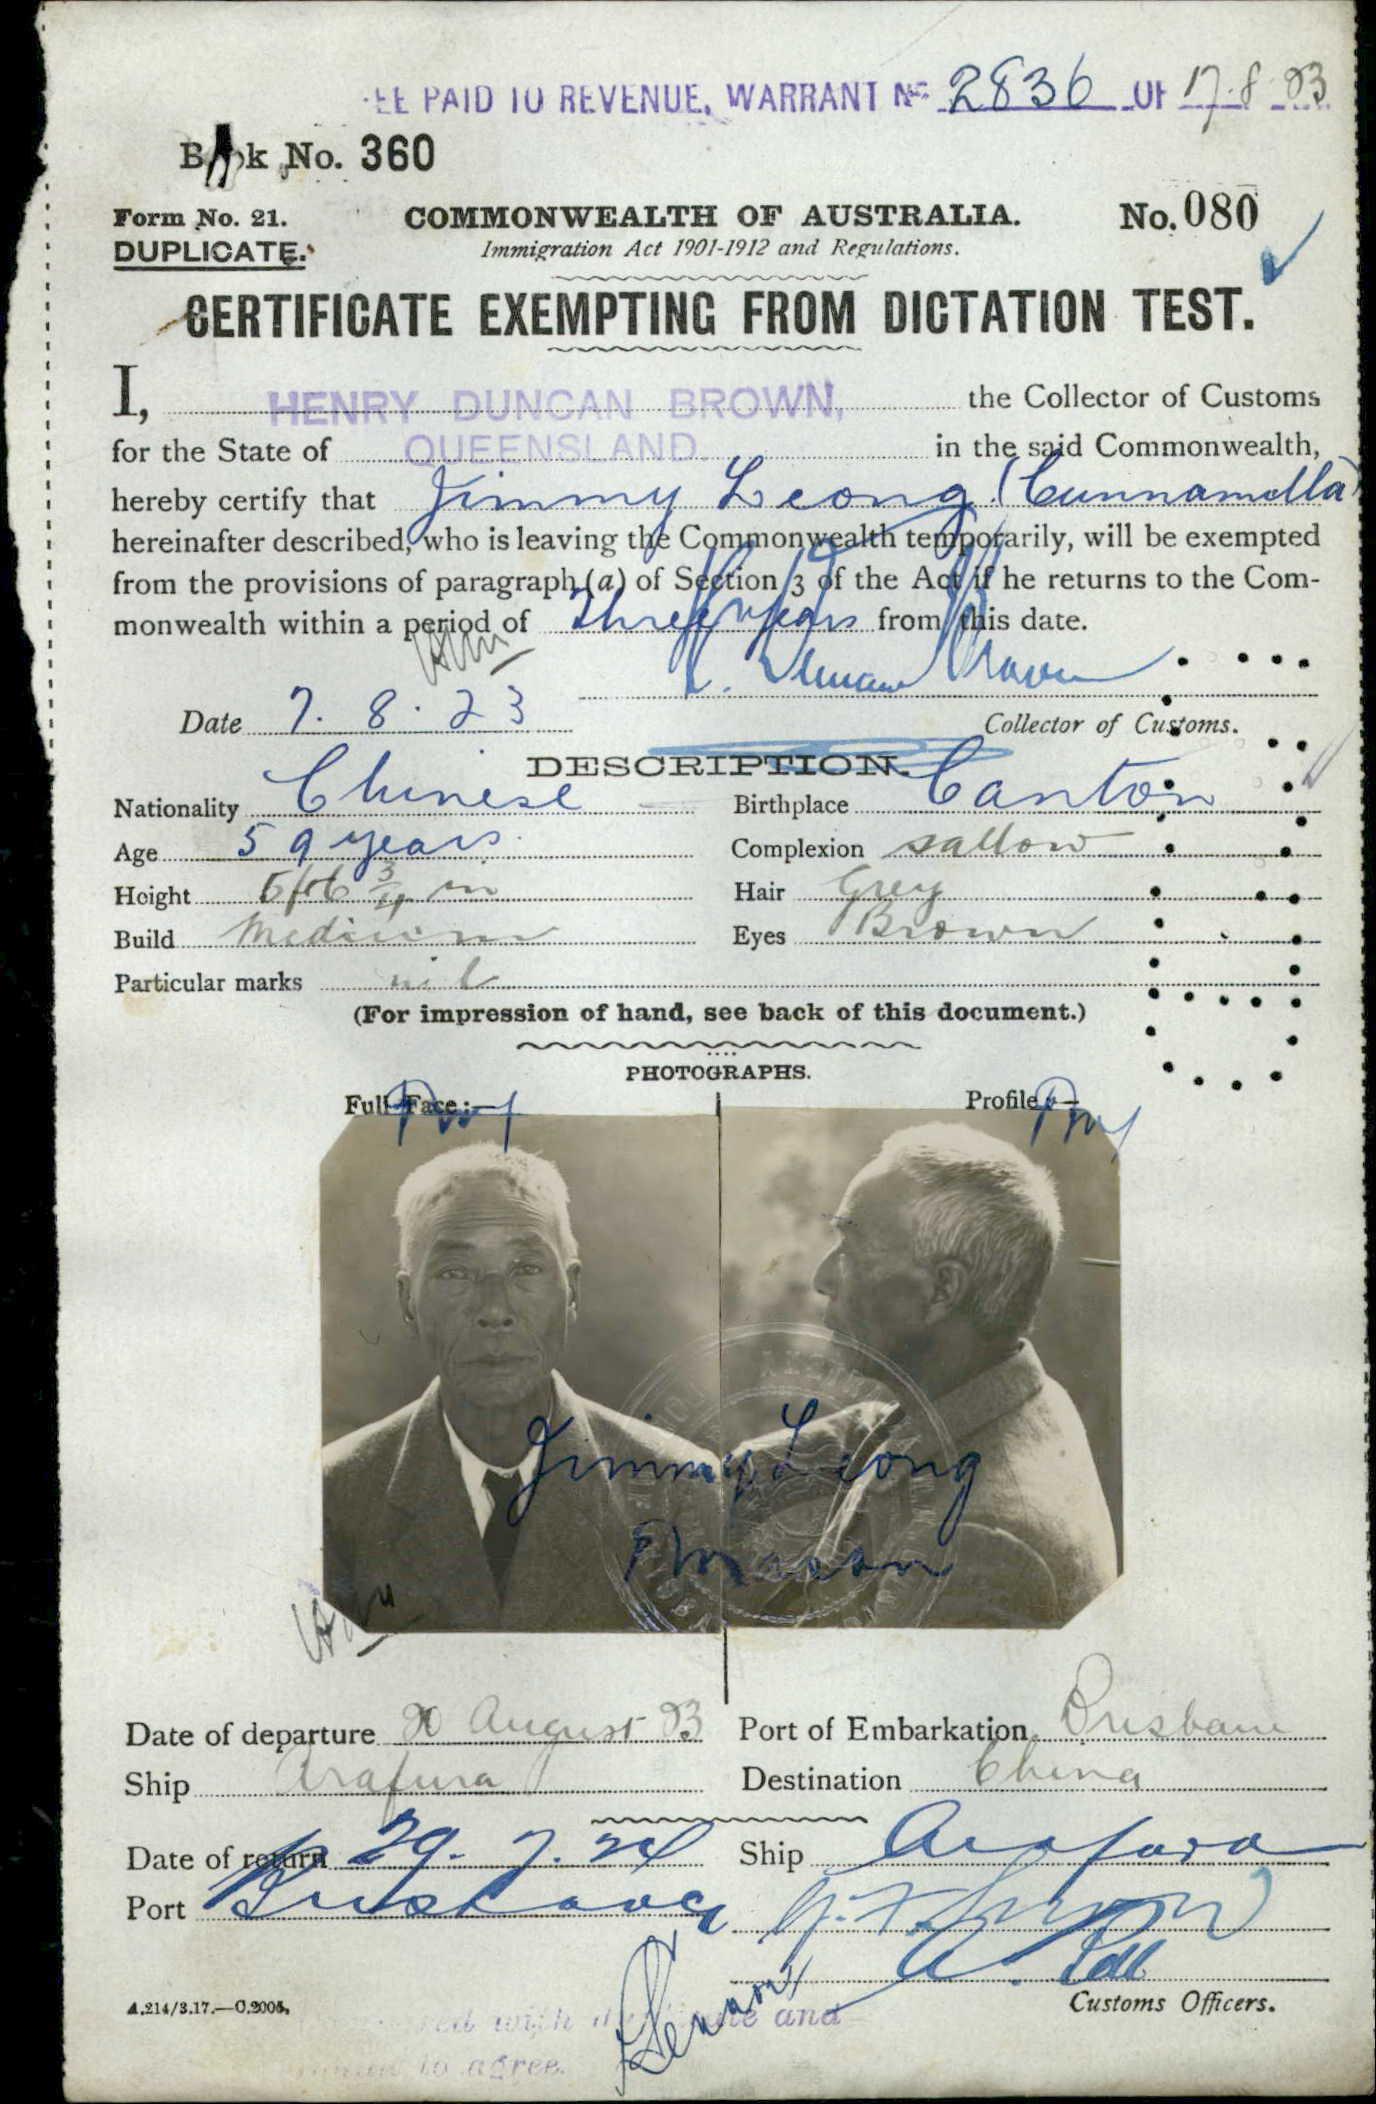 EE PAID TO REVENUE, WARRANT No 2836 OF 17.8.23
Book No. 360
Form No. 21. COMMONWEALTH OF AUSTRALIA. No. 080
DUPLICATE. Immigration Act 1901-1912 and Regulations.
CERTIFICATE EXEMPTING FROM DICTATION TEST.
I, HENRY DUNCAN BROWN, the Collector of Customs
for the State of QUEENSLAND. in the said Commonwealth,
hereby certify that Jimmy Leong (Cunnamulla)
hereinafter described, who is leaving the Commonwealth temporarily, will be exempted
from the provisions of paragraph (a) of Section 3 of the Act if he returns to the Com-
monwealth within a period of Three years from this date.
H. Duncan Brown
Date 7.8.23 Collector of Customs.
DESCRIPTION.
Nationality Chinese Birthplace Canton
Age 59 years Complexion sallow
Height 5ft 6 3/4 in Hair Grey
Build Medium Eyes Brown
Particular marks nil
(For impression of hand, see back of this document.)
PHOTOGRAPHS.
Full Face:— Profile:—
Jimmy Leong
Date of departure 20 August 23 Port of Embarkation Brisbane
Ship Arafura Destination China
Date of return 29.7.24 Ship Arafura
Port Brisbane
Customs Officers.
A.214/3.17.—C.2005.
with duplicate and
to agree.